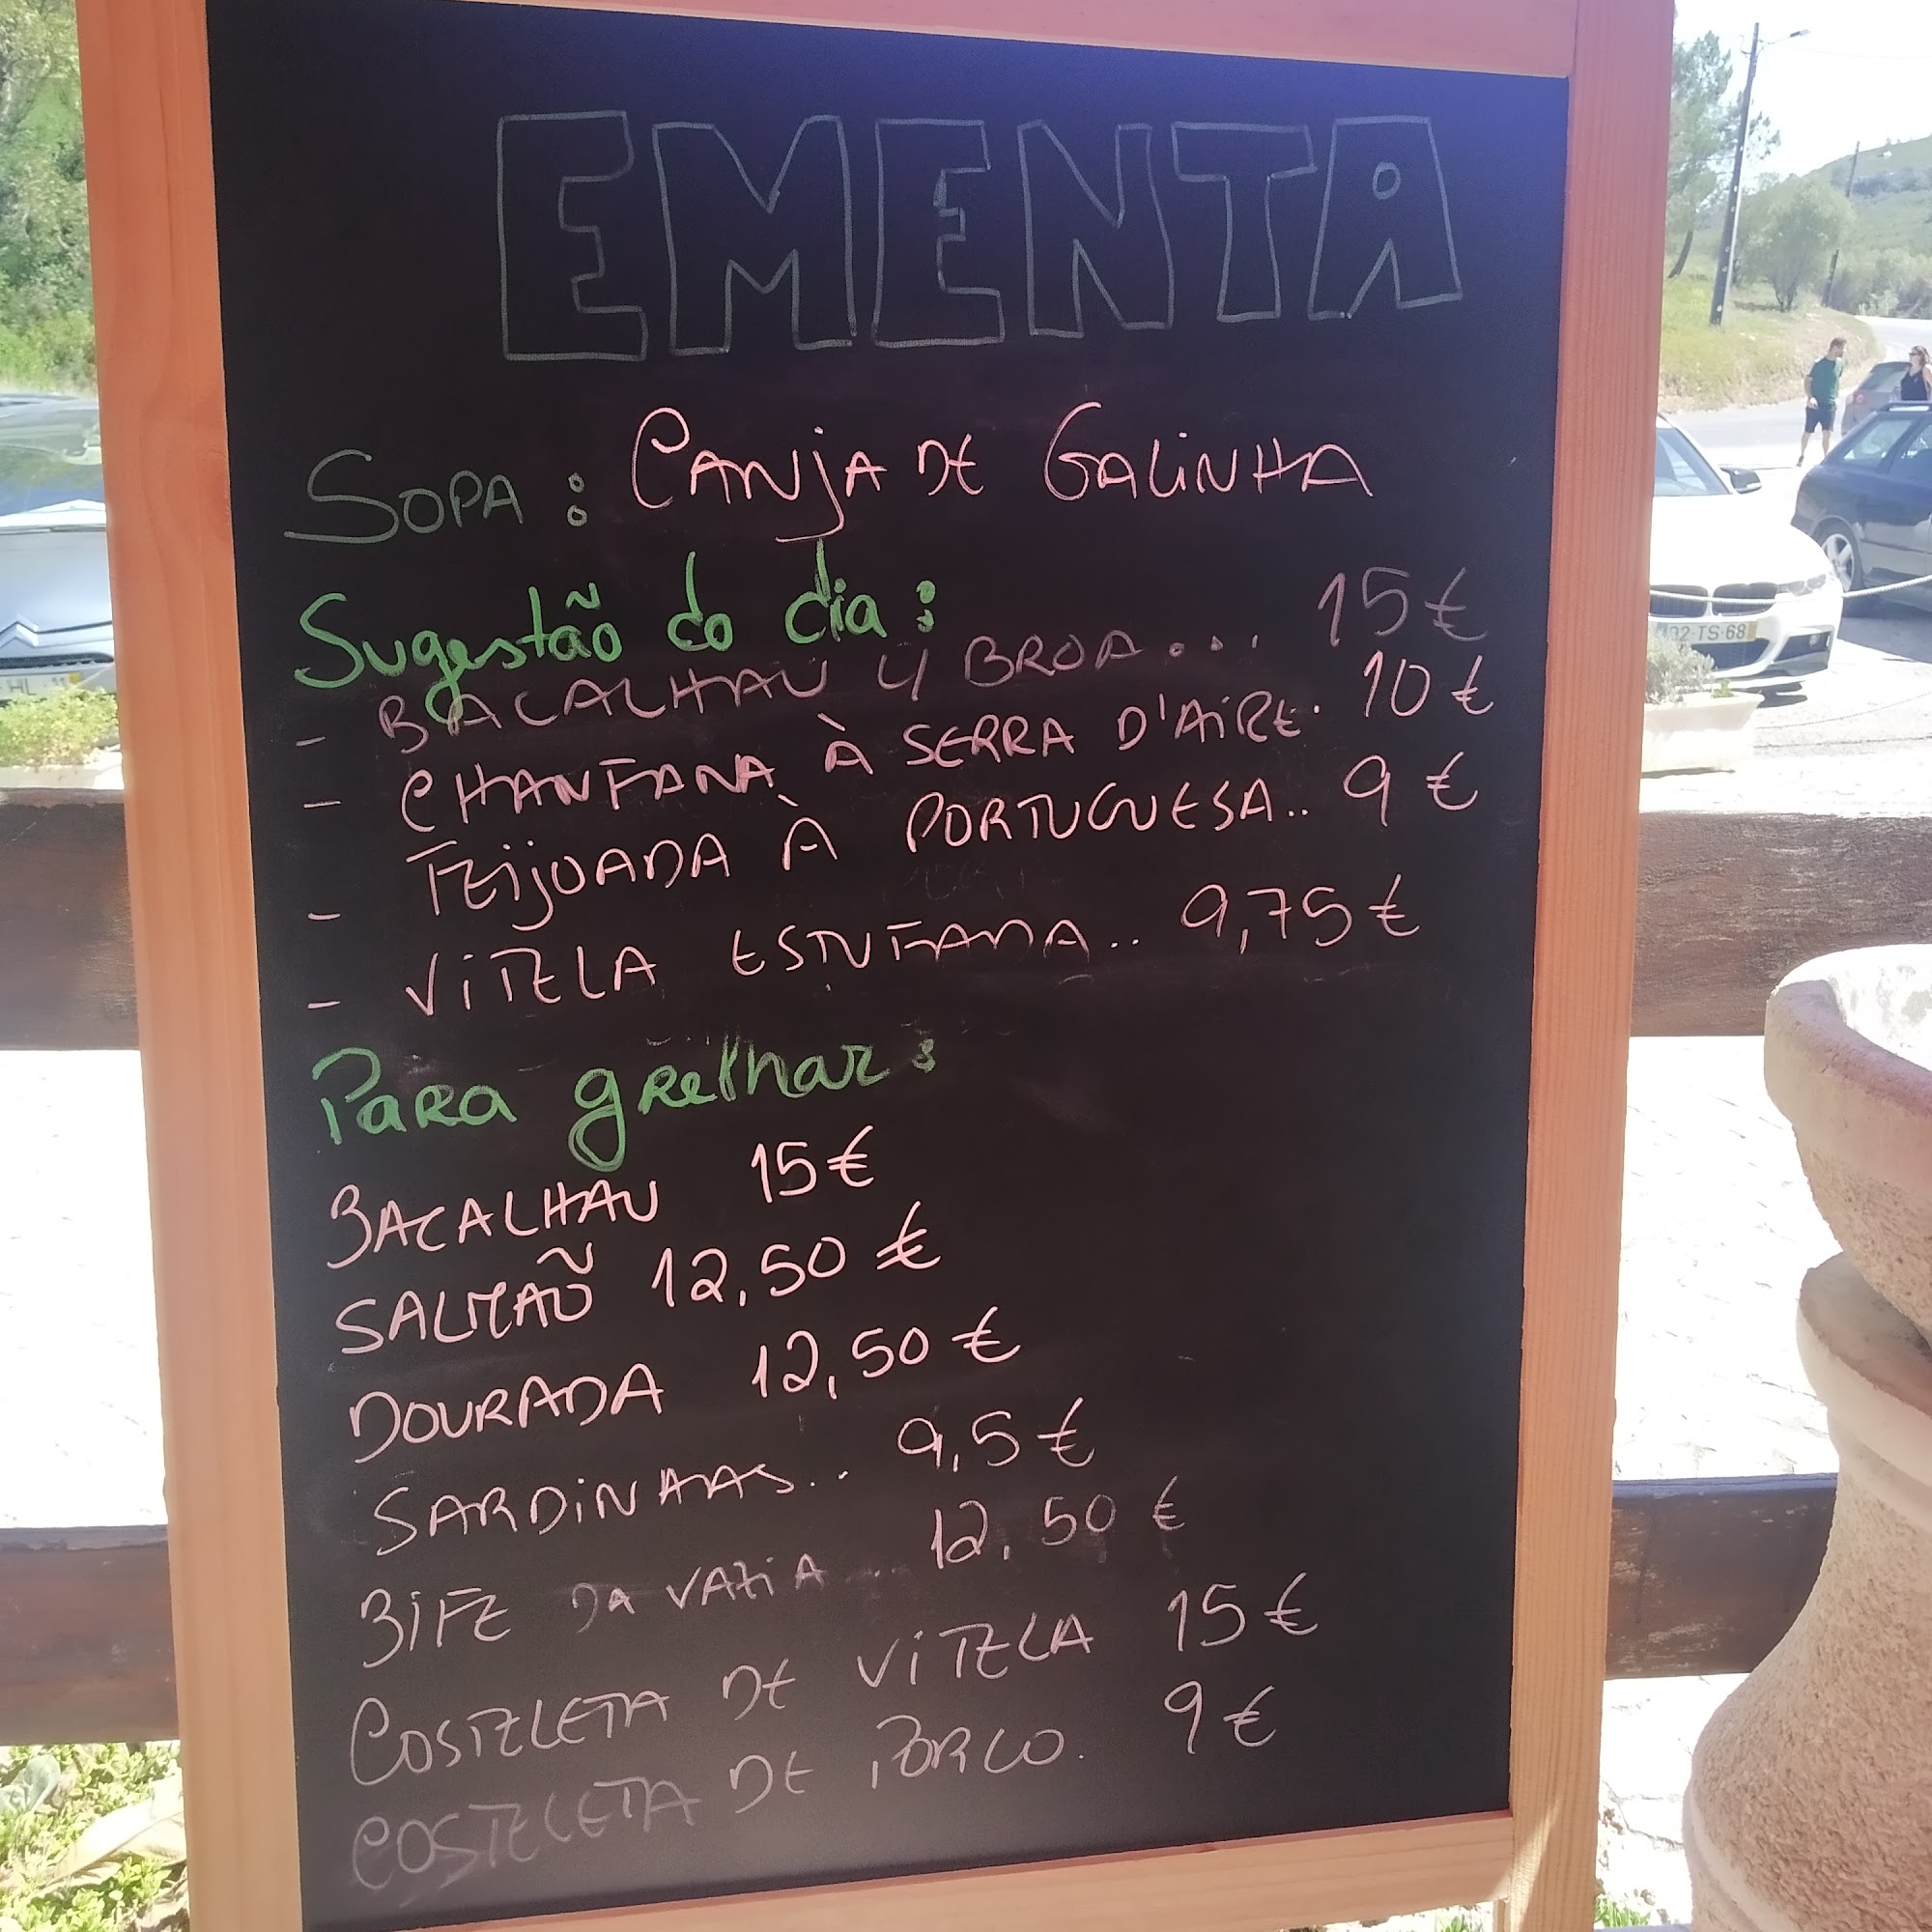 EMENTA
SOPA: CANJA DE GALINHA
Sugestão do dia:
- BACALHAU C/ BROA... 15€
- CHANFANA À SERRA D'AIRE. 10€
- FEIJOADA À PORTUGUESA.. 9€
- VITELA ESTUFADA.. 9,75€
Para grelhar:
BACALHAU 15€
SALMÃO 12,50€
DOURADA 12,50€
SARDINHAS.. 9,5€
BIFE DA VAZIA .. 12,50€
COSTELETA DE VITELA 15€
COSTELETA DE PORCO. 9€
32-TS-68